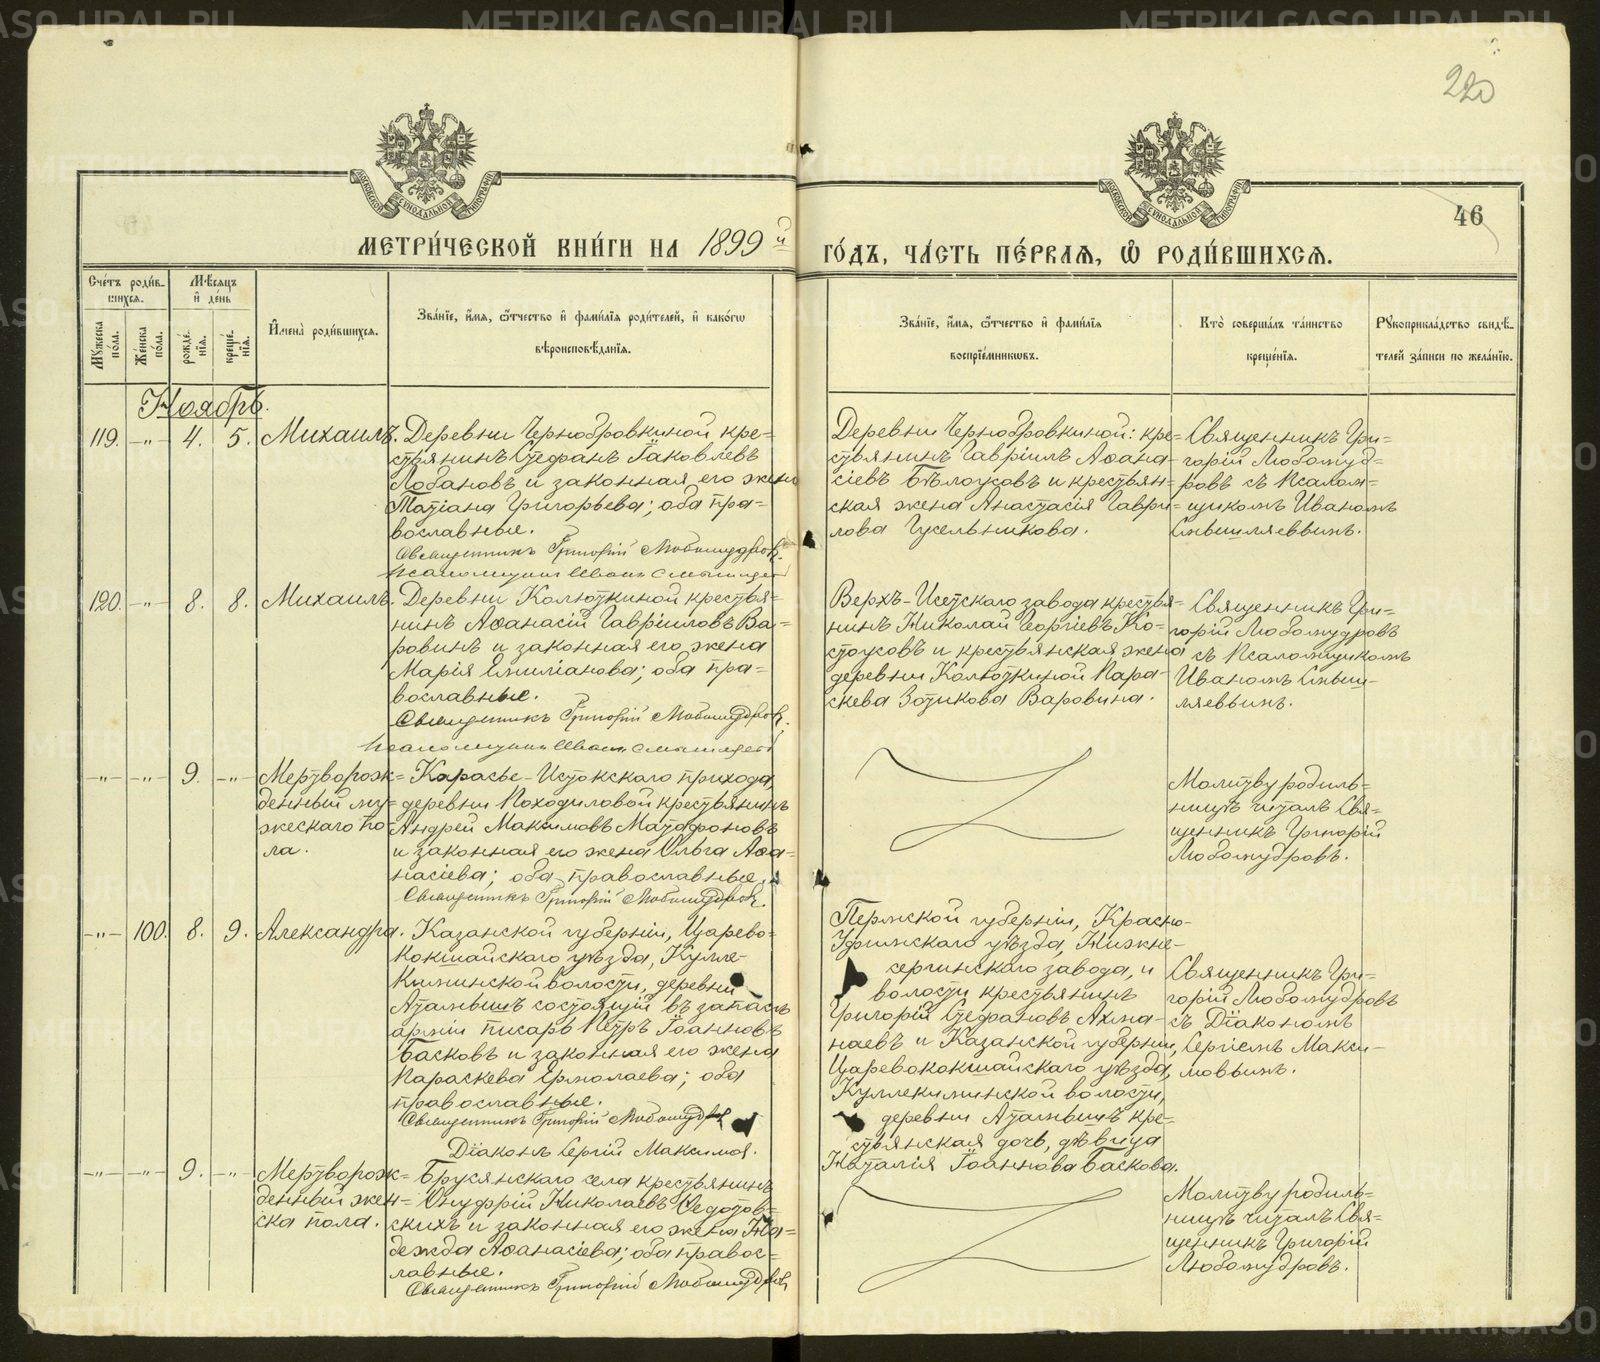 220
46
МЕТРИ́ЧЕСКОЙ КНИ́ГИ НА 1899 й ГО́ДЪ, ЧА́СТЬ ПЕ́РВАѦ, Ѽ РОДИ́ВШИХСѦ.
Сче́тъ роди́в-
шихся.
Мѣ́сяцъ
и де́нь
Мꙋ́жеска по́ла.
Же́нска по́ла.
рожде́нїя.
креще́нїя.
Имена̀ роди́вшихся.
Зва́нїе, и́мя, ѻ҆́тчество и фами́лїя роди́телей, и како́гѡ
вѣроисповѣ́данїя.
Зва́нїе, и́мя, ѻ҆́тчество и фами́лїя
воспрїе́мниковъ.
Кто̀ соверша́лъ та́инство
креще́нїя.
Рꙋкоприкла́дство свидѣ́-
телей за́писи по жела́нїю.
Ноябрь.
119. -"- 4. 5. Михаилъ.
Деревни Чернобровкиной кре-
стьянинъ Стефанъ Іаковлевъ
Лобановъ и законная его жена
Татіана Григорьева; оба пра-
вославные.
Священникъ Григорій Любомудровъ.
Псаломщикъ Иванъ Смышляевъ
Деревни Чернобровкиной: кре-
стьянинъ Гавріилъ Аѳана-
сіевъ Бѣлоусовъ и крестьян-
ская жена Анастасія Гаври-
лова Гусельникова.
Священникъ Гри-
горій Любомуд-
ровъ съ Псалом-
щикомъ Иваномъ
Смышляевымъ.
120. -"- 8. 8. Михаилъ.
Деревни Колюткиной крестья-
нинъ Аѳанасій Гавріиловъ Ва-
ровинъ и законная его жена
Марія Емиліанова; оба пра-
вославные.
Священникъ Григорій Любомудровъ.
Псаломщикъ Иванъ Смышляевъ
Верхъ-Исетскаго завода крестья-
нинъ Николай Георгіевъ Ко-
стоусовъ и крестьянская жена
деревни Колюткиной Пара-
скева Зотикова Варовина.
Священникъ Гри-
горій Любомудровъ
съ Псаломщикомъ
Иваномъ Смыш-
ляевымъ.
-"- -"- 9. -"- Мертворож-
денный му-
жескаго по-
ла.
Карасье-Истокскаго прихода,
деревни Походиловой крестьянинъ
Андрей Максимовъ Матафоновъ
и законная его жена Ольга Аѳа-
насіева; оба православные.
Священникъ Григорій Любомудровъ.
Молитву родиль-
ницѣ читалъ Свя-
щенникъ Григорій
Любомудровъ.
-"- 100. 8. 9. Александра.
Казанской губерніи, Царево-
кокшайскаго уѣзда, Кулле-
Киминской волости, деревни
Атамышъ состоящій въ запасѣ
арміи писарь Петръ Іоанновъ
Басковъ и законная его жена
Параскева Ермолаева; оба
православные.
Священникъ Григорій Любомудровъ
Діаконъ Сергій Максимов.
Пермской губерніи, Красно-
Уфимскаго уѣзда, Нижне-
сергинскаго завода, и
волости крестьянинъ
Григорій Стефановъ Ахма-
наевъ и Казанской губерніи,
Царевококшайскаго уѣзда,
Куллекиминской волости,
деревни Атамышъ кре-
стьянская дочь, дѣвица
Наталія Іоаннова Баскова.
Священникъ Гри-
горій Любомудровъ
съ Діакономъ
Сергіемъ Макси-
мовымъ.
-"- -"- 9. -"- Мертворож-
денный жен-
ска пола.
Брусянскаго села крестьянинъ
Онуфрій Николаевъ Седотов-
скихъ и законная его жена На-
дежда Аѳанасіева; оба правос-
лавные.
Священникъ Григорій Любомудровъ
Молитву родиль-
ницѣ читалъ Свя-
щенникъ Григорій
Любомудровъ.
METRIKI.GASO-URAL.RU